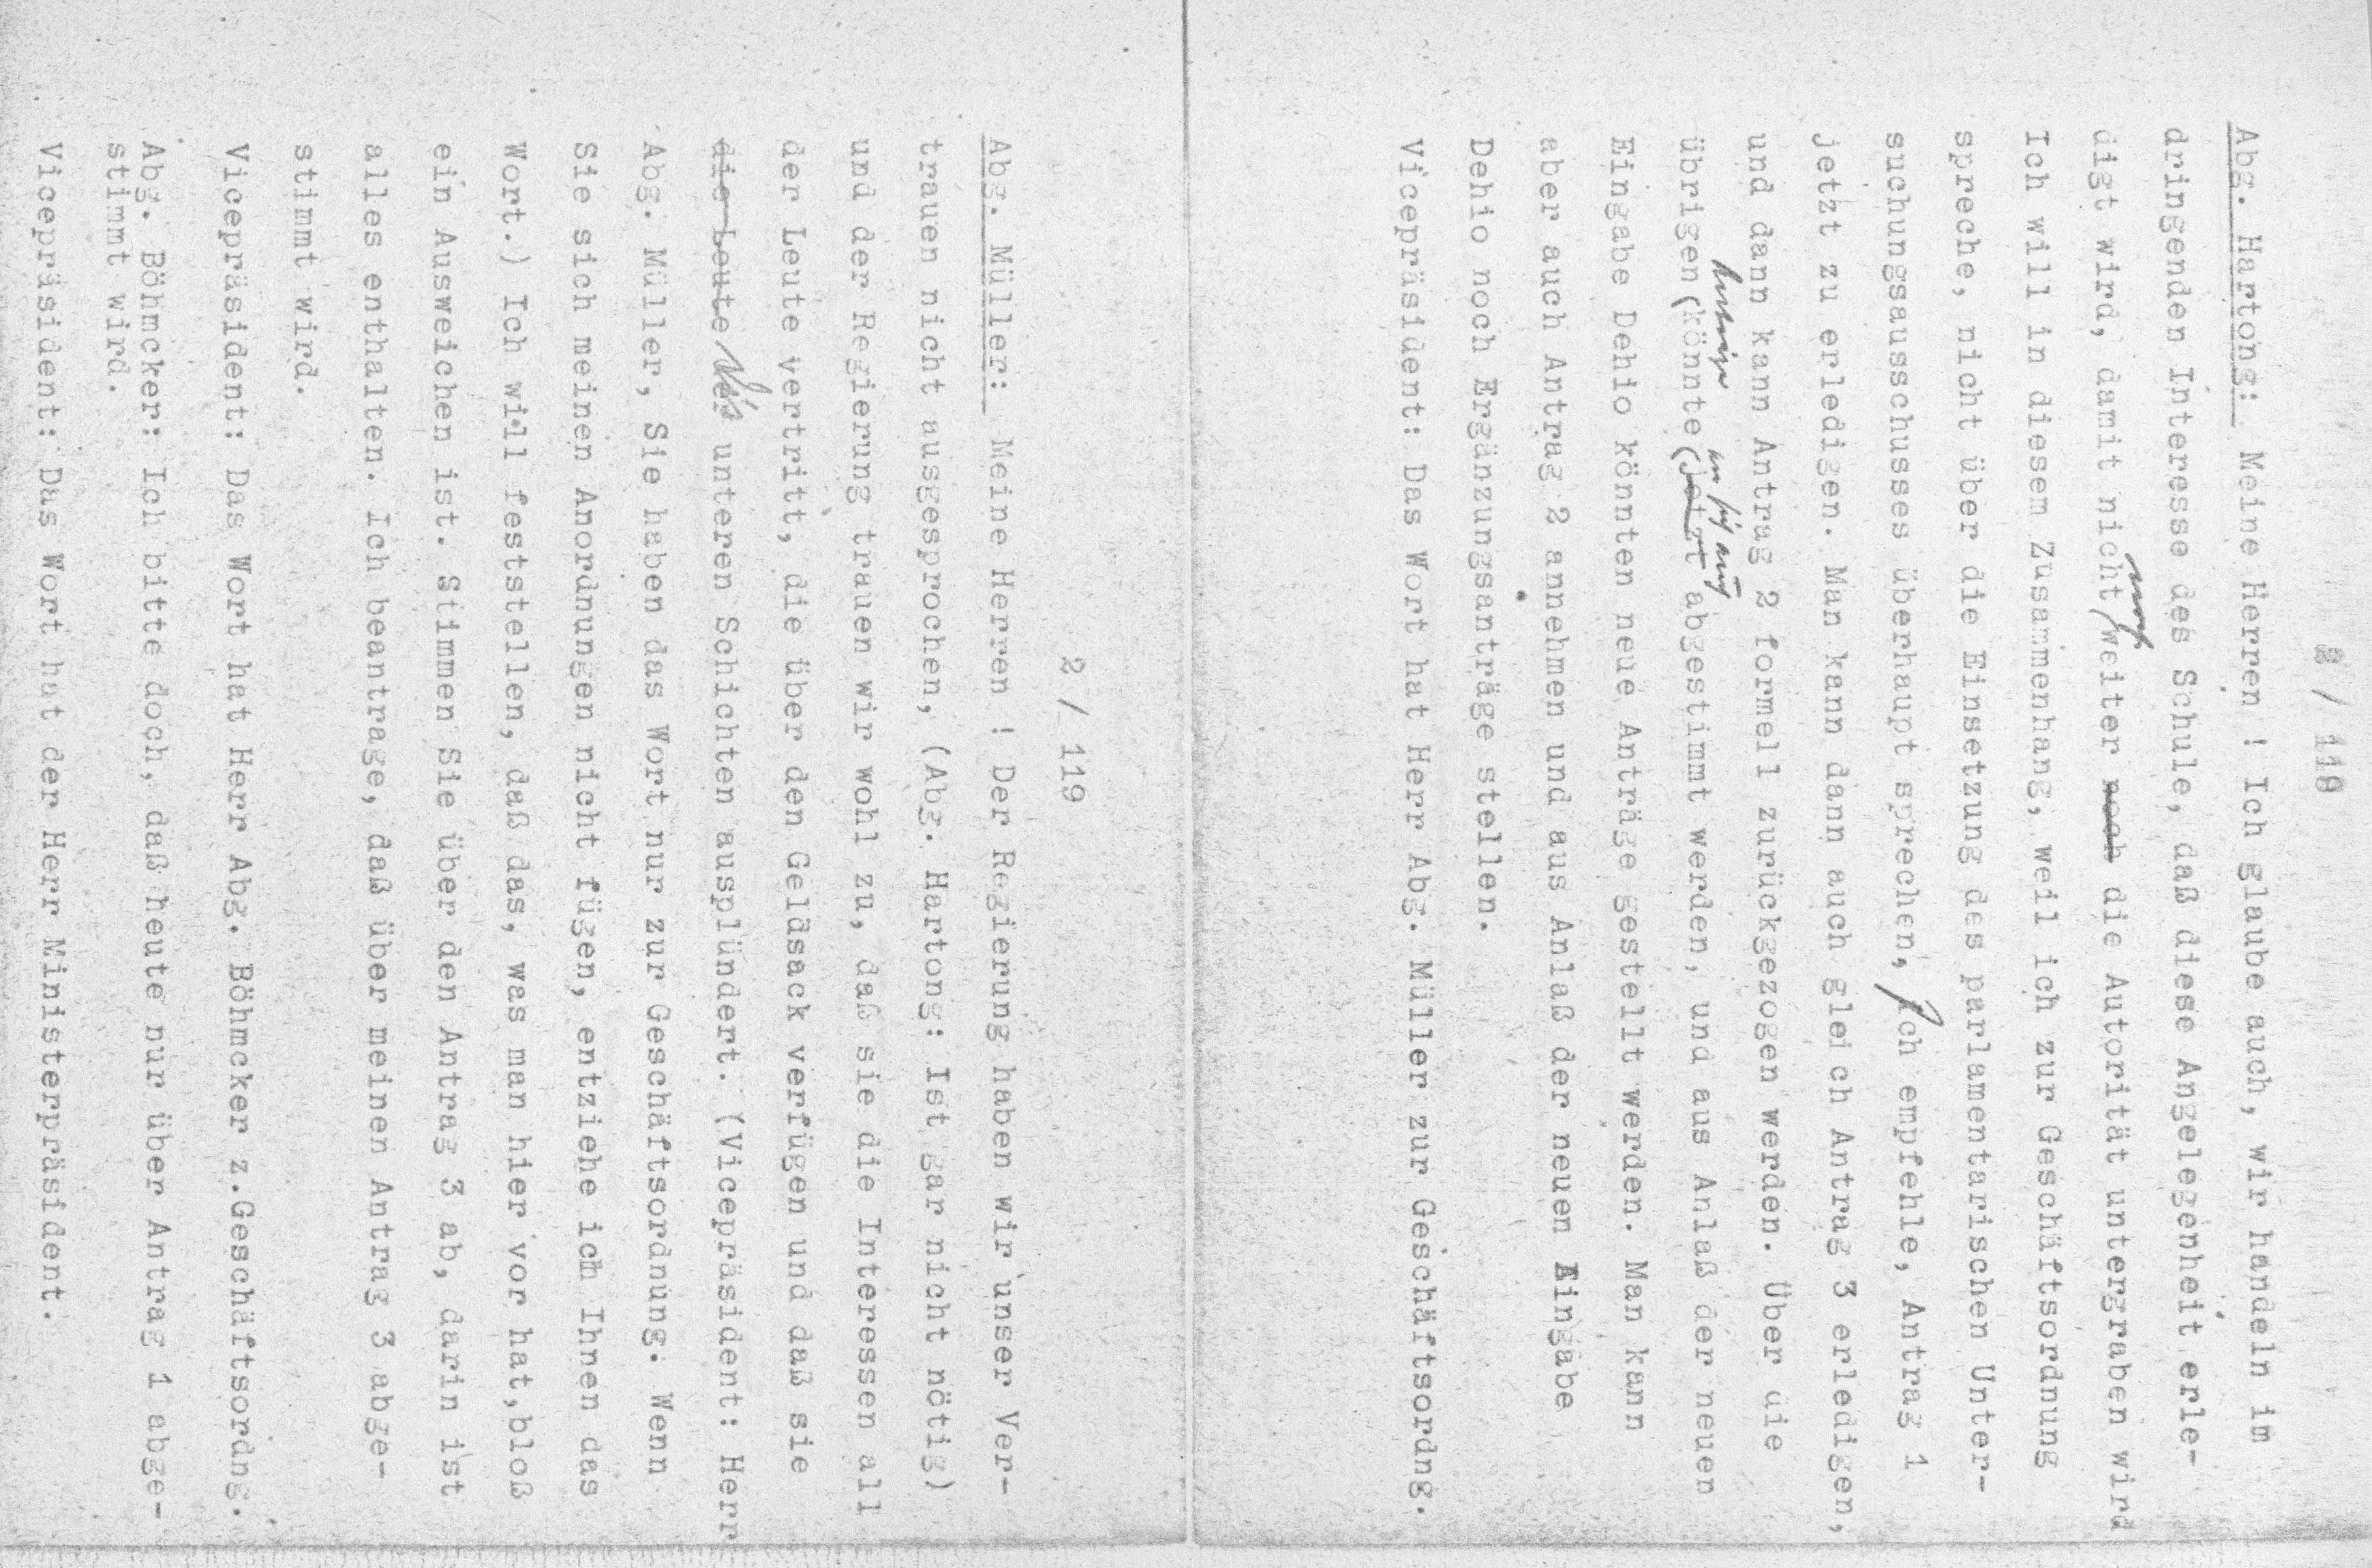 2 / 118
Abg. Hartong: Meine Herren ! Ich glaube auch, wir handeln im
dringenden Interesse des Schule, daß diese Angelegenheit erle-
digt wird, damit nicht noch weiter noch die Autorität untergraben wird
Ich will in diesem Zusammenhang, weil ich zur Geschäftsordnung
spreche, nicht über die Einsetzung des parlamentarischen Unter-
suchungsausschusses überhaupt sprechen, Ich empfehle, Antrag 1
jetzt zu erledigen. Man kann dann auch gleich Antrag 3 erledigen,
und dann kann Antrag 2 formell zurückgezogen werden. Über die
an sich auch
übrigen (könnte (jetzt abgestimmt werden, und aus Anlaß der neuen
Eingabe Dehio könnten neue Anträge gestellt werden. Man kann
aber auch Antrag 2 annehmen und aus Anlaß der neuen Eingabe
Dehio noch Ergänzungsanträge stellen.
Vicepräsident: Das Wort hat Herr Abg. Müller zur Geschäftsordng.
2 / 119
Abg. Müller: Meine Herren ! Der Regierung haben wir unser Ver-
trauen nicht ausgesprochen, (Abg. Hartong: Ist gar nicht nötig)
und der Regierung trauen wir wohl zu, daß sie die Interessen all
der Leute vertritt, die über den Geldsack verfügen und daß sie
die Leute der unteren Schichten ausplündert. (Vicepräsident: Herr
Abg. Müller, Sie haben das Wort nur zur Geschäftsordnung. Wenn
Sie sich meinen Anordnungen nicht fügen, entziehe ich Ihnen das
Wort.) Ich will feststellen, daß das, was man hier vor hat,bloß
ein Ausweichen ist. Stimmen Sie über den Antrag 3 ab, darin ist
alles enthalten. Ich beantrage, daß über meinen Antrag 3 abge-
stimmt wird.
Vicepräsident: Das Wort hat Herr Abg. Böhmcker z.Geschäftsordng.
Abg. Böhmcker: Ich bitte doch, daß heute nur über Antrag 1 abge-
stimmt wird.
Vicepräsident: Das Wort hat der Herr Ministerpräsident.